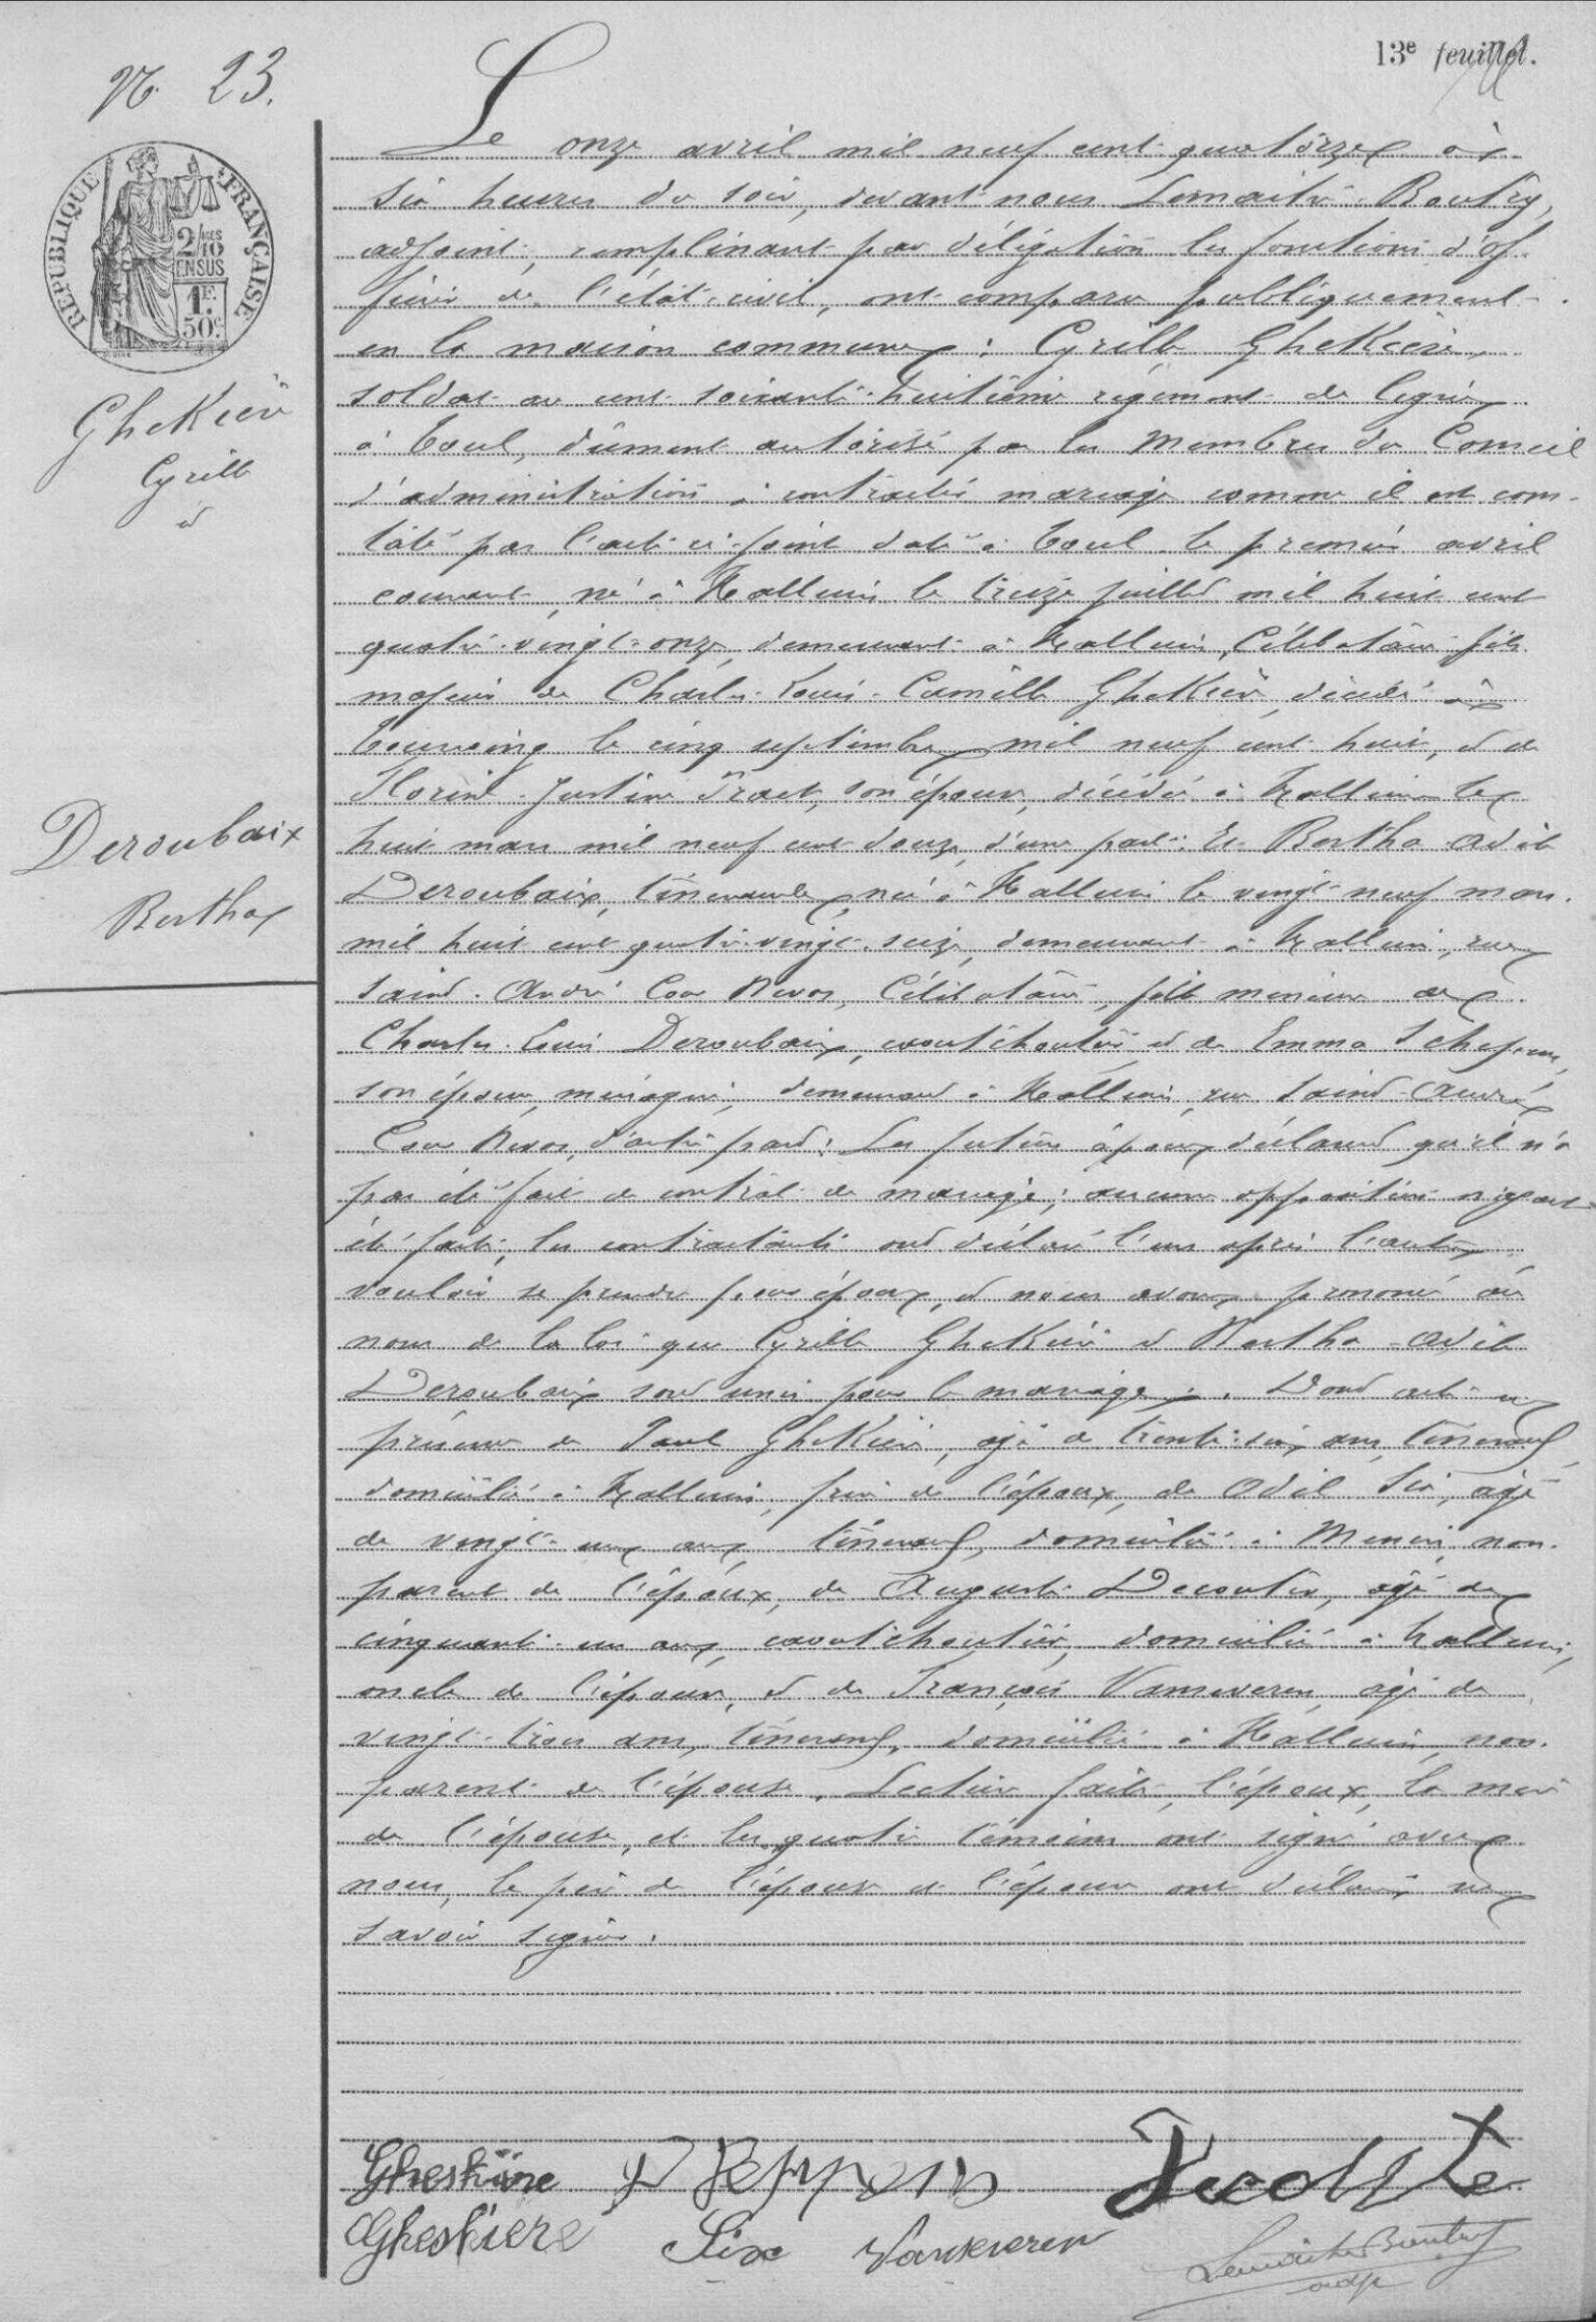 13e feuillet.
N° 23.
RÉPUBLIQUE FRANÇAISE
2/10 EN SUS
1F. 50c
Ghekière
Cyrille
et
Deroubaix
Bertha
Le onze avril mil neuf cent quatorze à
six heures du soir, devant nous Lemaitre-Boutry,
adjoint, remplissant par délégation les fonctions d'of-
ficier de l'état-civil, ont comparu publiquement
en la maison commune : Cyrille Ghekière,
soldat au cent soixante-huitième régiment de ligne
à Toul, dûment autorisé par les Membres du Conseil
d'administration à contracter mariage comme il est cons-
taté par l'acte ci-joint daté à Toul le premier avril
courant, né à Halluin le treize juillet mil huit cent
quatre-vingt-onze, demeurant à Halluin, Célibataire, fils
majeur de Charles-Louis-Camille Ghekière, décédé à
Tourcoing le cinq septembre mil neuf cent huit, et de
Justine son épouse, décédée à Halluin le
huit mars mil neuf cent douze, d'une part: Et Bertha-Odile
Deroubaix, tisserande, née à Halluin le vingt-neuf mars
mil huit cent quatre-vingt-seize, demeurant à Halluin, rue
Saint-André Cour Célibataire, fille mineure de
Charles-Louis Deroubaix, caoutchoutier et de Emma
son épouse, ménagère, demeurant à Halluin, rue Saint-André
Cour d'autre part: Les futurs époux déclarent qu'il n'a
pas été fait de contrat de mariage; aucune opposition n'ayant
été faite, les contractants ont déclaré l'un après l'autre
vouloir se prendre pour époux, et nous avons prononcé au
nom de la loi que Cyrille Ghekière et Bertha-Odile
Deroubaix sont unis par le mariage. Dont acte en
présence de Paul Ghekière, âgé de trente-six ans, tisserand,
domicilié à Halluin, frère de l'époux, de Odil Six, âgé
de vingt-un ans, tisserand, domicilié à Menin, non-
parent de l'époux, de Auguste Decoutter, âgé de
cinquante-un ans, caoutchoutier, domicilié à Halluin,
oncle de l'épouse, et de François Vanseveren, âgé de
vingt-trois ans, tisserand, domicilié à Halluin, non-
parent de l'épouse. Lecture faite, l'époux, la mère
de l'épouse, et les quatre témoins ont signé avec
nous, le père de l'épouse et l'épouse ont déclaré ne
savoir signer.
Gheskiere
Gheskiere Six Vanseveren
Lemaitre Boutry
adjt